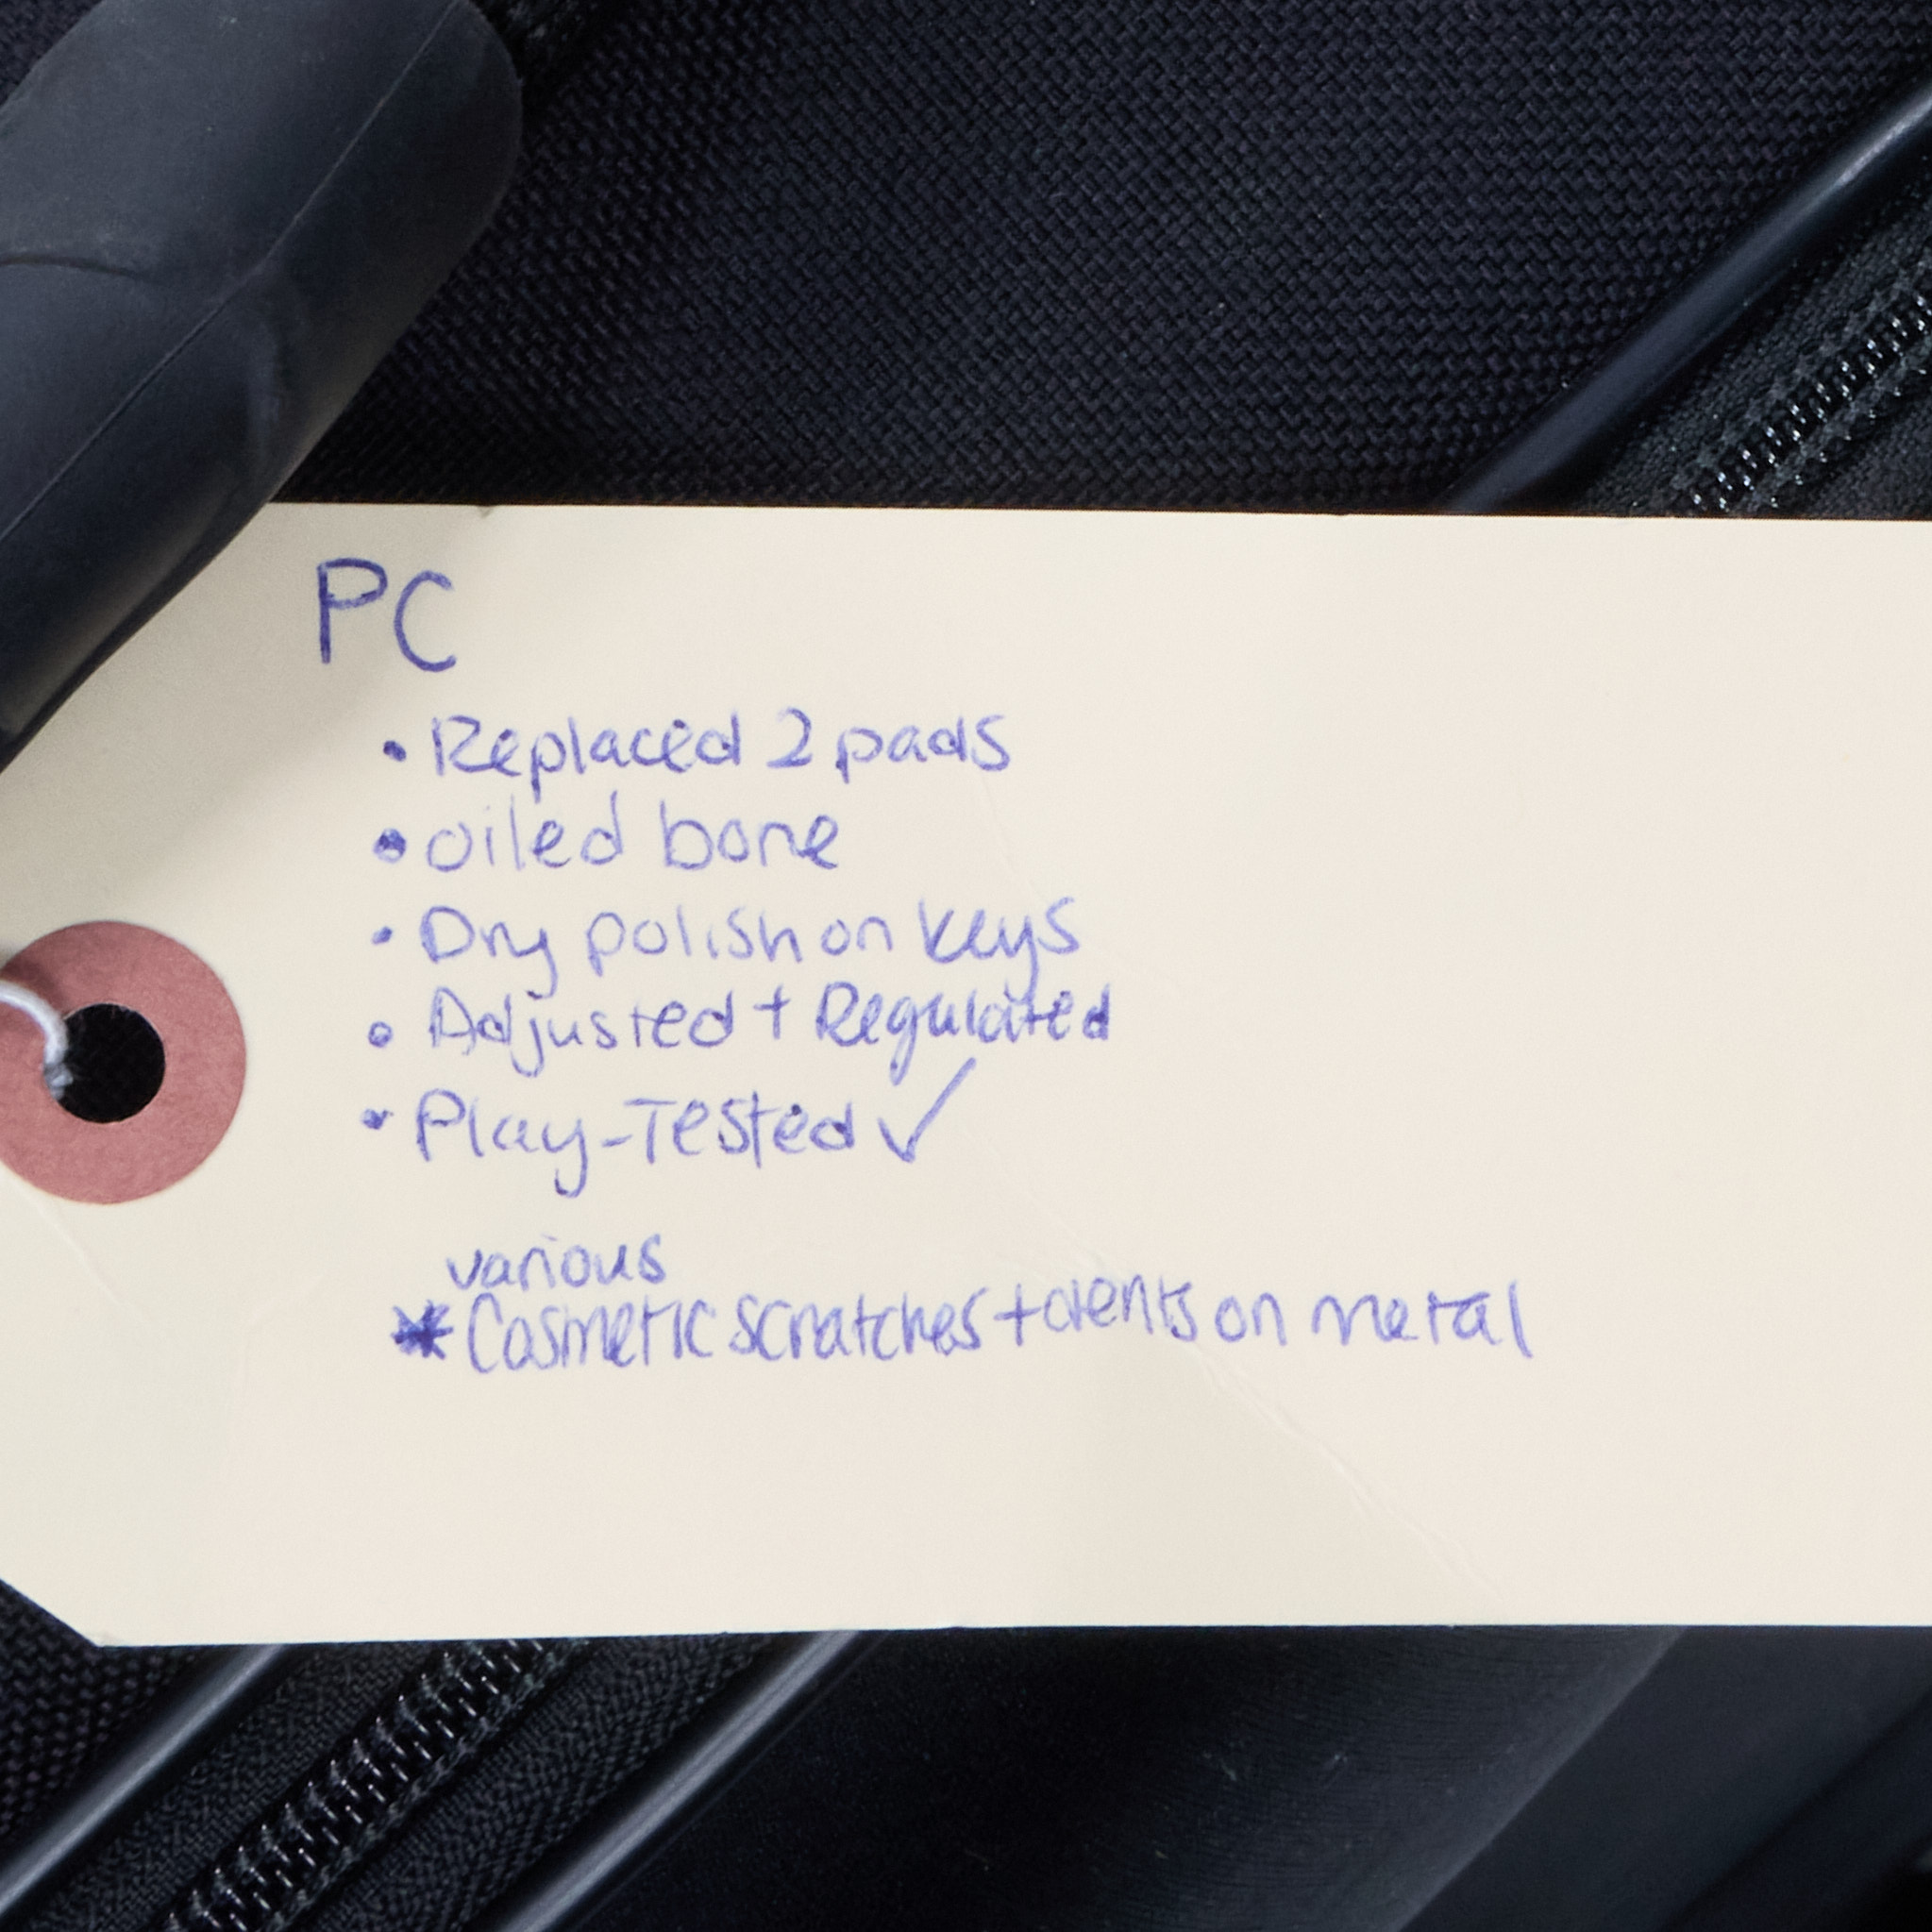 PC
• Replaced 2 pads
• oiled bone
• Dry polish on keys
• Adjusted + Regulated
• Play-Tested ✓
various
* Cosmetic scratches + dents on metal